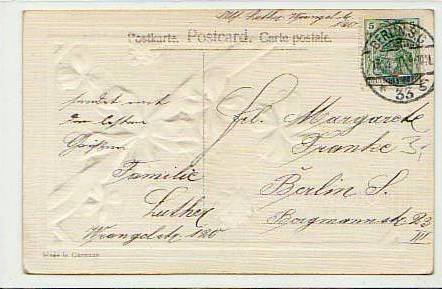 Abs. Luther, Wrangelstr.
120
Postkarte. Postcard. Carte postale.
5 5
BERLIN S.O.
33
sendet mit
den besten
Grüßen
Familie
Luther
Wrangelstr 120
Frl. Margarete
Franke
Berlin S.
Bergmannstr 23
III
Made in Germany